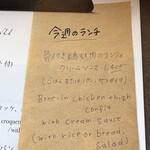 今週のランチ
骨付き鶏もも肉のコンフィ
クリームソース
(ごはん またはパン、サラダ付)
Bone-in chicken thigh
confit
with cream sauce
(with rice or bread,
salad)
croquet
/wit